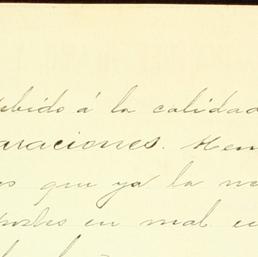 debido á la calidad
araciones. Hem
os que ya la
en mal